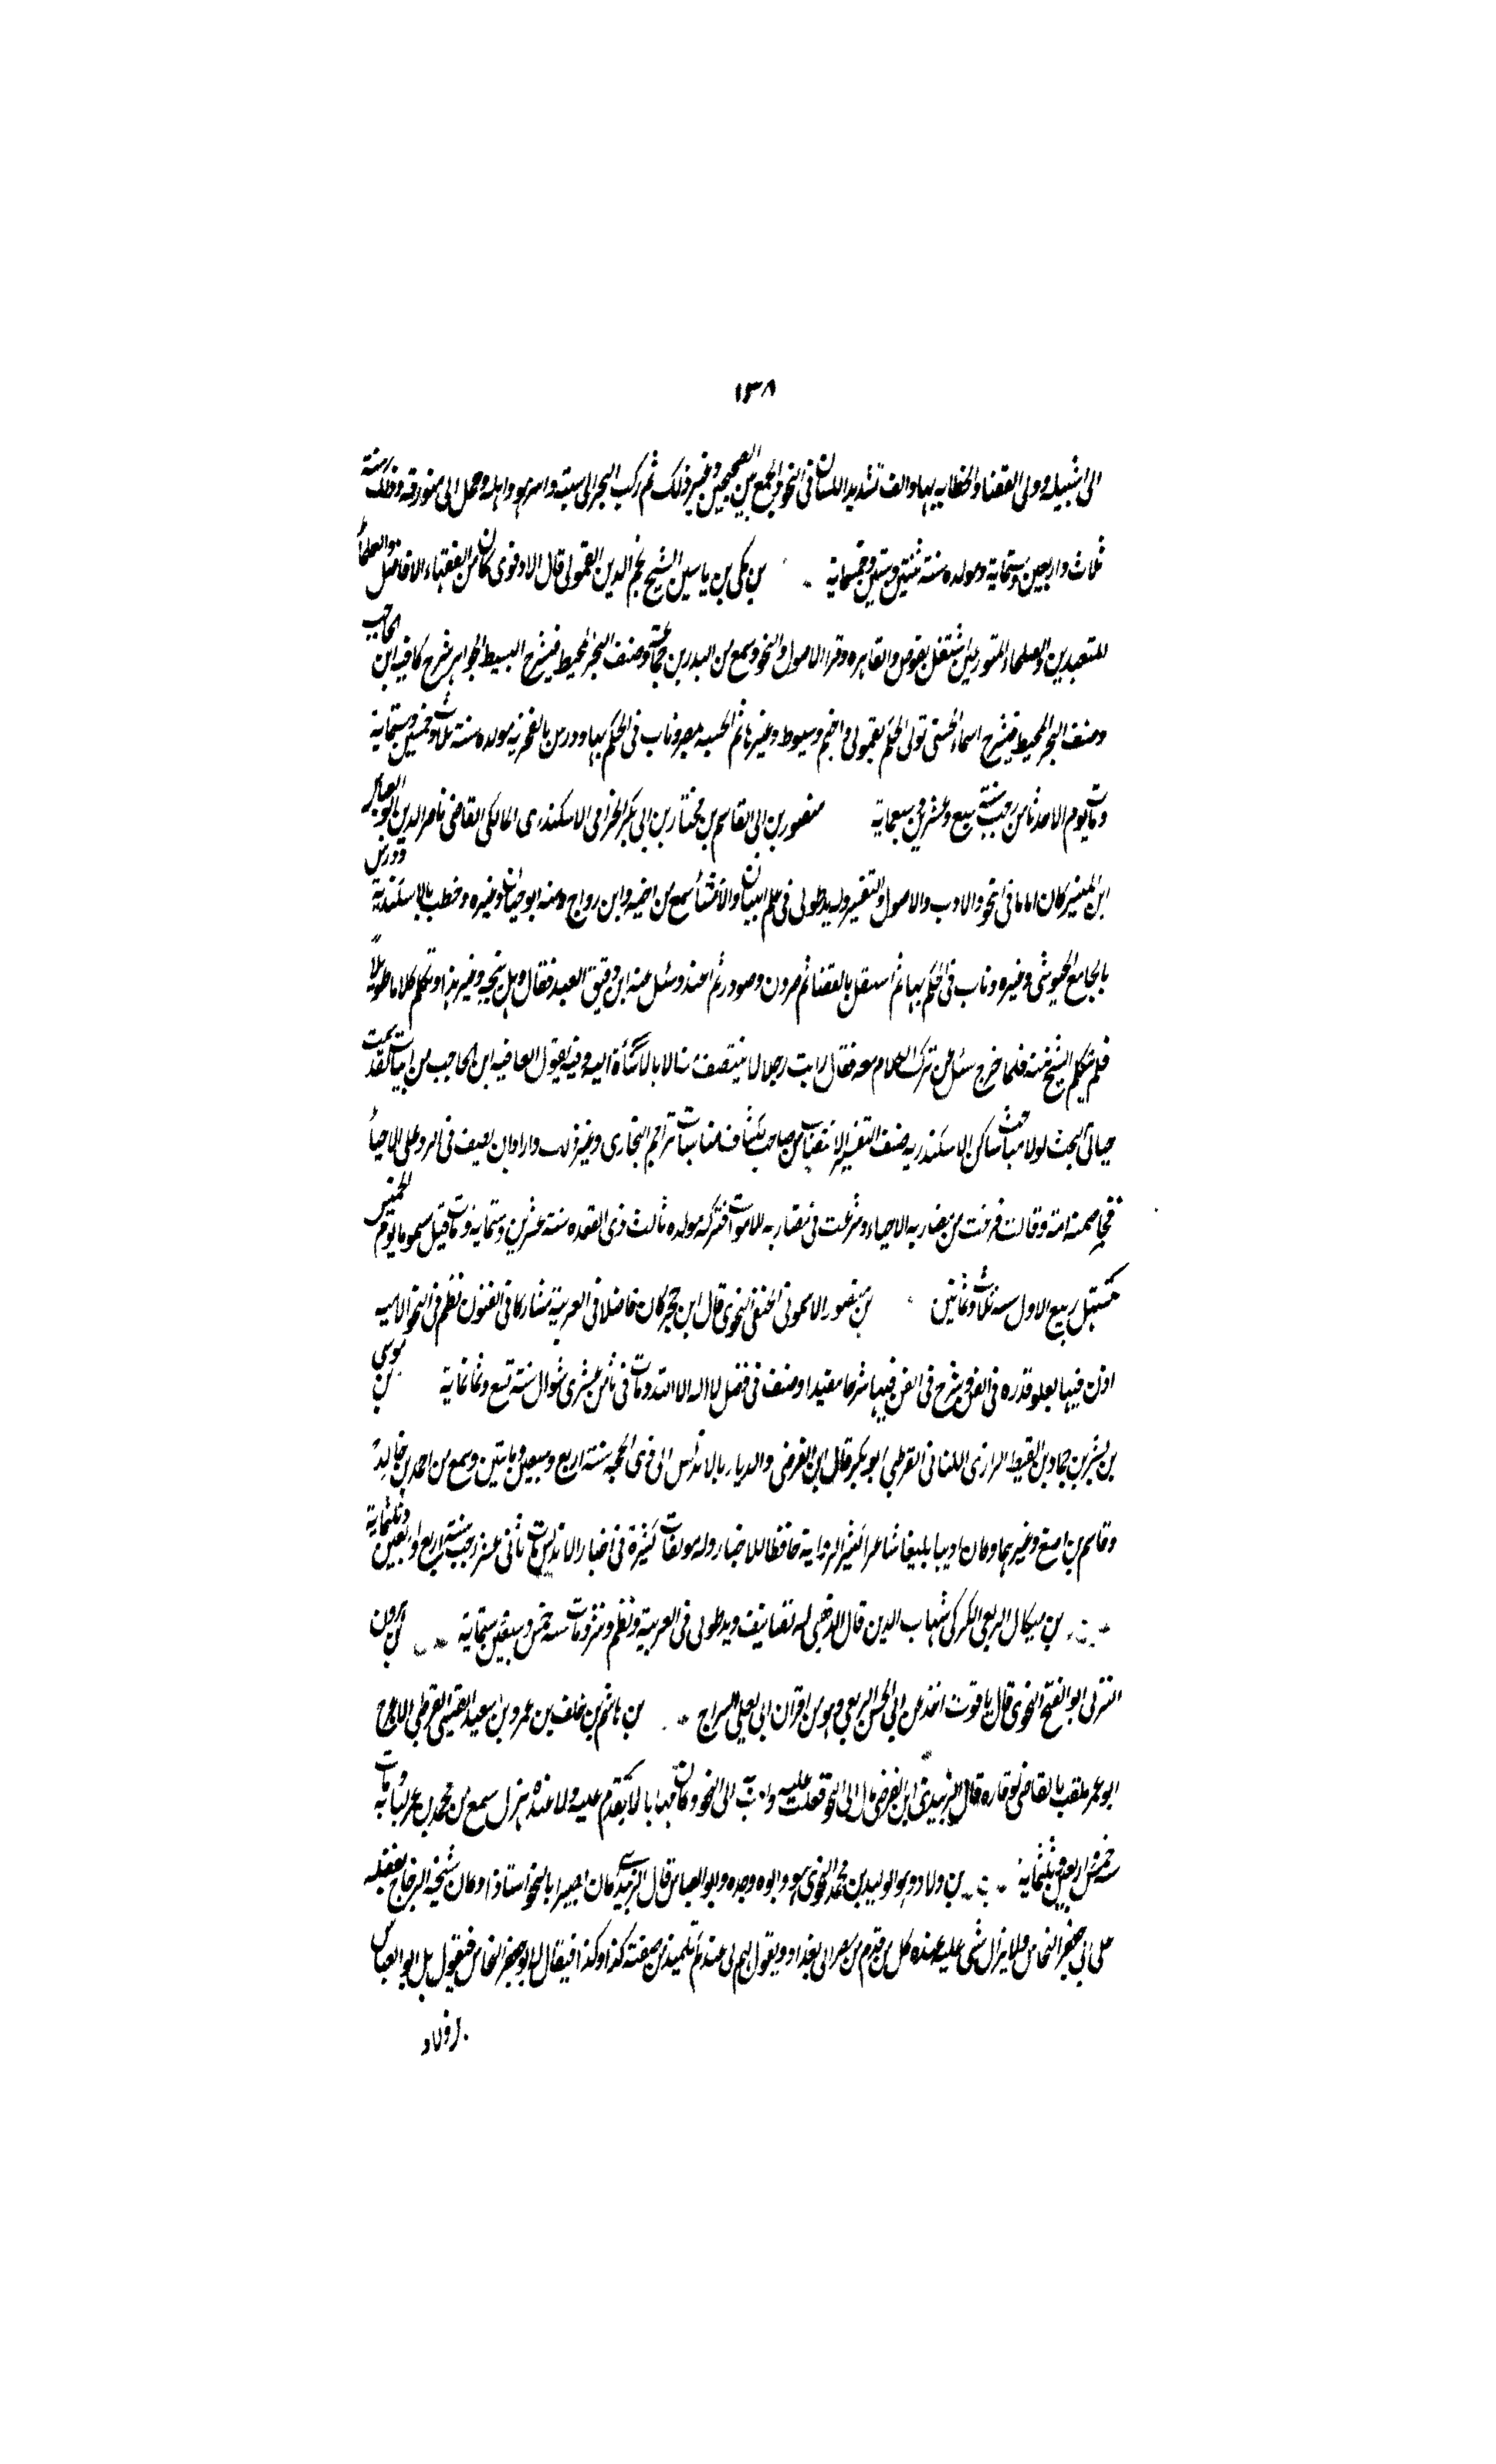 ١٣٨
الى اشبيليه وولى القضاء والخطابه بها والف تشديد اللسان فى النحو والجمع بين الصحيحين وغير ذلك ثم ركب البحر الى سبتة واسر هو واهله وحمل الى منورقه وذلك سنة
ثلاث واربعين وستماية ومولده سنة ثنتين وستين وخمسماية بن مكى بن ياسين الشيخ نجم الدين القمولى قال الادفوى كان من الفقهاء الافاضل والعلماء
المتعبدين والصلحاء المتورعين اشتغل بقوص والقاهره وقرا الاصول والنحو وسمع من البدر بن جماعة وصنف البحر المحيط فى شرح البسيط الجواهر شرح كافيه ابن الحاجب
وصنف البحر المحيط فى شرح اسماء الحسنى تولى الحكم بقمولى واخيم وسيوط وغيرها ثم الحسبه بمصر وناب فى الحكم بها ودرس بالفخريه مولده سنة ثلاث وخمسين وستماية
ومات يوم الاحد ثامن رجب سنة سبع وعشرين وسبعماية منصور بن ابى القاسم بن مختار بن ابى بكر الجذامى الاسكندرى المالكى القاضى ناصر الدين ابو العباس
ابن المنير كان اماما فى النحو والادب والاصول والتفسير وله يد طولى فى علم البيان والانشاء سمع من ابيه وابن رواج ومنه ابو حيان وغيره وخطب بالاسكندرية ودرس
بالجامع الجيوشى وغيره وناب فى الحكم بها ثم استقل بالقضاء ثم صرف وصودر ثم اعيد وسئل عنه ابن دقيق العيد فقال وهل يتجه وغير هذا وتكلم كلاما طويلا
فلم يتكلم الشيخ منه فلما خرج سئل عن ترك الكلام معه فقال رايت رجلا لا ينتصف منه الا بالاساءة اليه وفيه يقول العلامه ابن الحاجب من ابيات لقد سئمت
حياتى البحث لولا مباحث ساكن الاسكندريه صنف التفسير الانتصاف من صاحب الكشاف مناسبات تراجم البخارى وغير ذلك واراد ان يصنف فى الرد على الاحياء
فخاصمته امه وقالت فرغت من مضاربه الاحياء وشرعت فى مضاربه للاموات فتركه مولده ثالث ذى القعده سنة عشرين وستماية ومات قيل مسموما يوم الخميس
مستهل ربيع الاول سنة ثلاث وثمانين بن منصور الاشمونى الحنفى النحوى قال ابن حجر كان فاضلا فى العربية مشاركا فى الفنون نظم فى النحو لاميه
اذن فيها بعلو قدره فى الفن وشرح فى الفن فيها شرحا مفيدا وصنف فى فضل لا اله الا الله ومات فى ثامن عشرى شوال سنة تسع وثمانماية بن موسى
بن بشر بن حماد بن لقيط الرازى الكنانى القرطبى ابو بكر قال ابن الفرضى والديار بالاندلس الى ذى الحجه سنة اربع وسبعين ومايتين وسمع من احمد بن خالد
وقاسم بن اصبغ وغيرهما وكان اديبا بليغا شاعرا كثير الرواية حافظا للاخبار وله مولفات كثيرة فى اخبار الاندلس مات ثانى عشر رجب سنة اربع واربعين وثلثماية
بن ميكال الربعى الكركى شهاب الدين قال الذهبى له تصانيف ويد طولى فى العربية ونظم ونثر ومات سنة خمس وسبعين وستماية بن مروان
النرزلى ابو الفتح النحوى قال ياقوت اخذ عن ابى الحسن الربعى وهو من اقران ابى يعلى السراج بن هاشم بن خلف بن عمرو بن سعيد القيسى القرطبى الاعرج
ابو عمر ملقب بالقاضى لوقاره قال الزبيدى وابن الفرضى مال الى النحو فغلب عليه وادب الى النحو وكان مهابا لا يقدم عليه ولا عنده يهزل سمع من محمد بن عمر لبابه ومات
سنة خمس واربعين وثلثماية بن ولاد وهو الوليد بن محمد النحوى هو وابوه وجده وابو العباس قال الزبيدى كان بصيرا بالنحو استاذا وكان شيخه الزجاج يفضله
على ابى جعفر النحاس ولا يزال يثنى عليه عنده كل من قدم من مصر الى بغداد ويقول لهم لى عندكم تلميذ من صفته كذا وكذا فيقال له ابو جعفر النحاس فيقول بل ابو العباس
بن ولاد